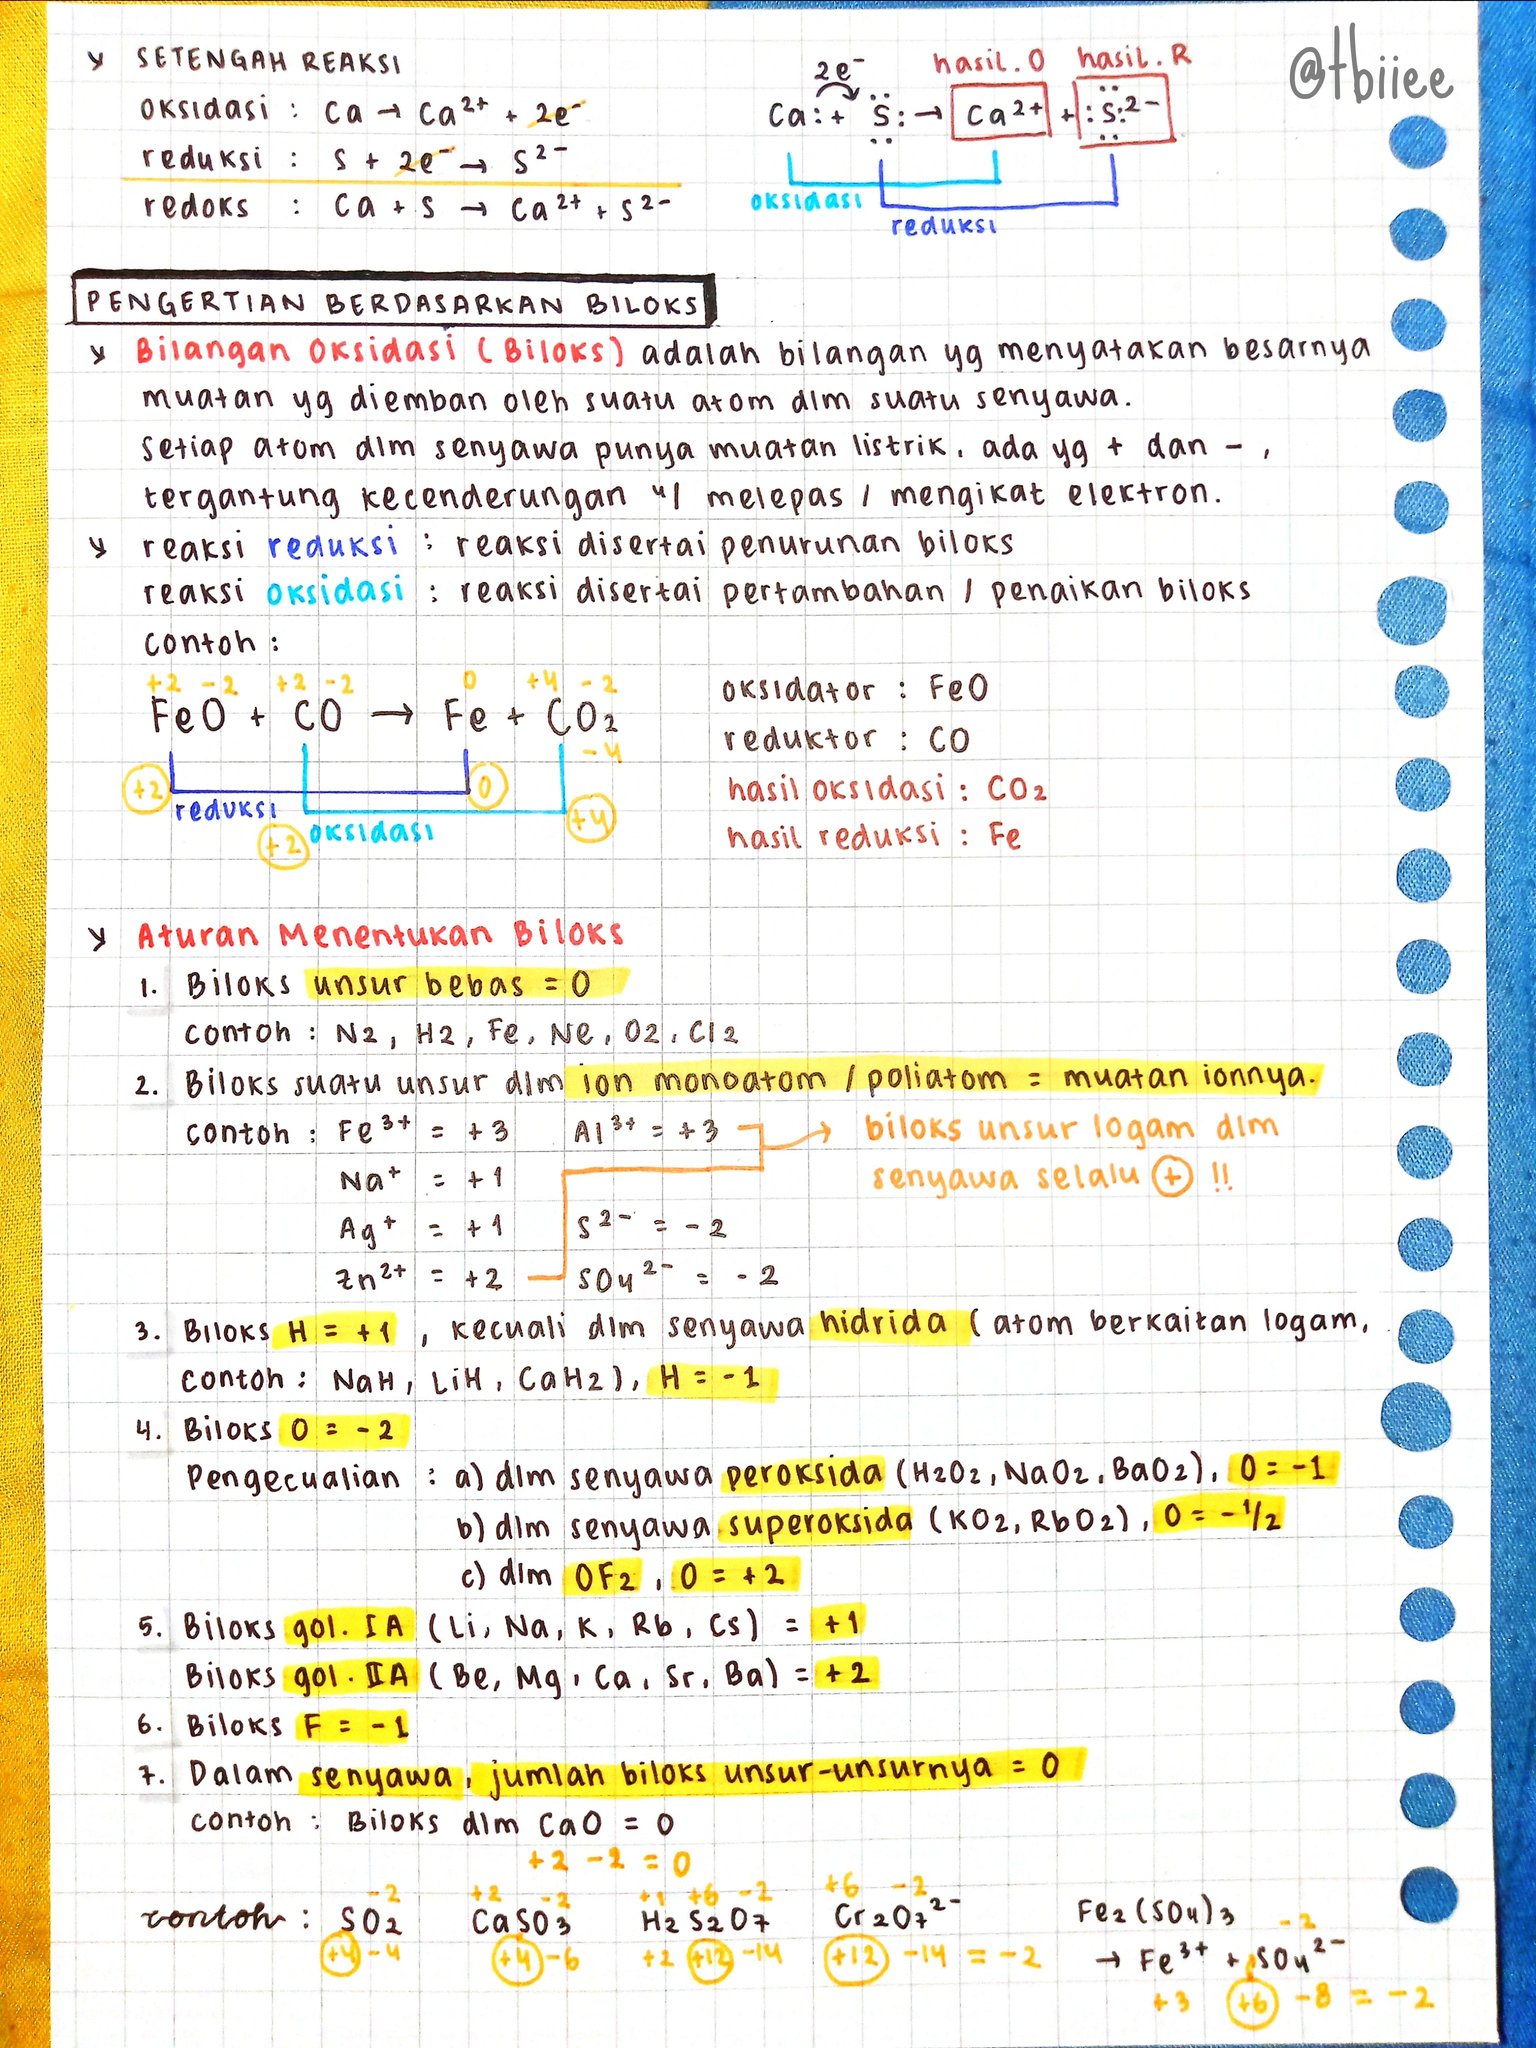 @tbiiee
SETENGAH REAKSI
oksidasi : Ca → Ca²⁺ + 2e⁻
reduksi : S + 2e⁻ → S²⁻
redoks : Ca + S → Ca²⁺ + S²⁻
2e⁻ hasil.O hasil.R
Ca: + S: → Ca²⁺ + :S:²⁻
oksidasi
reduksi
PENGERTIAN BERDASARKAN BILOKS
Bilangan Oksidasi (Biloks) adalah bilangan yg menyatakan besarnya
muatan yg diemban oleh suatu atom dlm suatu senyawa.
Setiap atom dlm senyawa punya muatan listrik, ada yg + dan -,
tergantung kecenderungan u/ melepas / mengikat elektron.
reaksi reduksi : reaksi disertai penurunan biloks
reaksi oksidasi : reaksi disertai pertambahan / penaikan biloks
contoh :
+2 -2 +2 -2 0 +4 -2
FeO + CO → Fe + CO₂
-4
+2 reduksi 0
+2 oksidasi +4
oksidator : FeO
reduktor : CO
hasil oksidasi : CO₂
hasil reduksi : Fe
Aturan Menentukan Biloks
1. Biloks unsur bebas = 0
contoh : N₂, H₂, Fe, Ne, O₂, Cl₂
2. Biloks suatu unsur dlm ion monoatom / poliatom = muatan ionnya.
contoh : Fe³⁺ = +3 Al³⁺ = +3 → biloks unsur logam dlm
Na⁺ = +1 senyawa selalu + !!
Ag⁺ = +1 S²⁻ = -2
Zn²⁺ = +2 SO₄²⁻ = -2
3. Biloks H = +1, kecuali dlm senyawa hidrida (atom berkaitan logam,
contoh : NaH, LiH, CaH₂), H = -1
4. Biloks O = -2
Pengecualian : a) dlm senyawa peroksida (H₂O₂, NaO₂, BaO₂), O = -1
b) dlm senyawa superoksida (KO₂, RbO₂), O = -1/2
c) dlm OF₂, O = +2
5. Biloks gol. IA (Li, Na, K, Rb, Cs) = +1
Biloks gol. IIA (Be, Mg, Ca, Sr, Ba) = +2
6. Biloks F = -1
7. Dalam senyawa, jumlah biloks unsur-unsurnya = 0
contoh : Biloks dlm CaO = 0
+2 -2 = 0
-2 +2 -2 +1 +6 -2 +6 -2
contoh : SO₂ CaSO₃ H₂S₂O₇ Cr₂O₇²⁻ Fe₂(SO₄)₃
+4 -4 +4 -6 +2 +12 -14 +12 -14 = -2
-2
→ Fe³⁺ + SO₄²⁻
+3 +6 -8 = -2